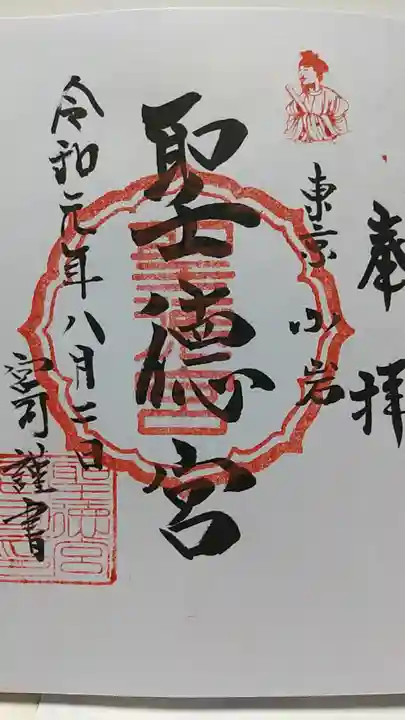 奉拝
東京 小岩
聖徳宮
令和元年八月二日
宮司 謹書
聖徳宮